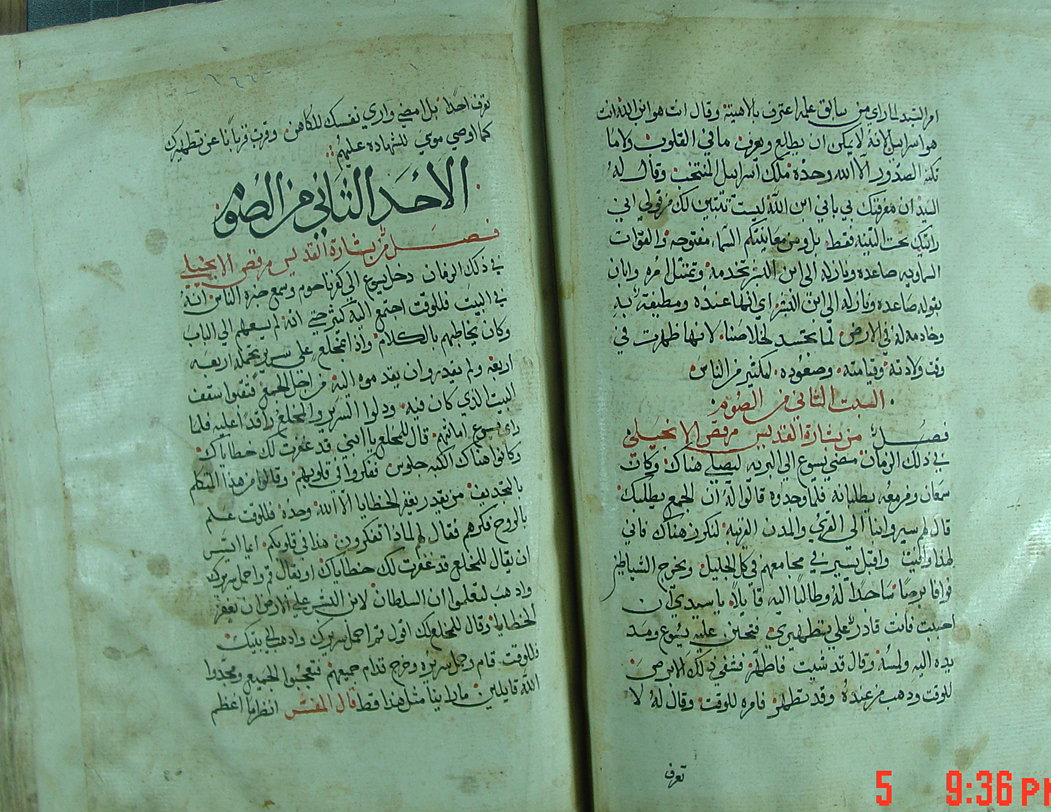 امر السيد لما راى من سابق علمه اعترف بالاهيته وقال انت هو ابن الله انت
هو اسراييل لانه لا يمكن ان يطلع ويعرف ما في القلوب ولا ما
تكنه الصدور الا الله وحده ملك اسراييل المنتخب وقال له
السيد ان معرفتك بي باني ابن الله ليست تتبين لك من قولي اني
رايتك تحت التينة فقط بل ومن معاينتكم السما مفتوحه والقوات
السماويه صاعده ونازله الى ابن البشر تخدمه وتمتثل امره وابان
بقوله صاعده ونازله الى ابن البشر اي انها عنده ومطيعة له
وخادمه له في الارض لما تجسد لخلاصنا لانها ظهرت في
وقت ولادته وقيامته وصعوده لكثير من الناس
السبت الثاني من الصوم
فصل من بشارة القديس مرقص الانجيلي
في ذلك الزمان مضى يسوع الى البريه ليصلي هناك وكان
سمعان ومن معه يطلبانه فلما وجدوه قالوا له ان الجمع يطلبك
قال لهم سيروا بنا الى القرى والمدن القريبه لنكرز هناك فاني
لهذا وافيت واقبل يبشر في مجامعهم في كل الجليل ويخرج الشياطين
فوافا برصا ساجدا له وطالبا اليه قايلا يا سيدي ان
احببت فانت قادر على تطهيري فتحنن عليه يسوع ومد
يده اليه ولمسه وقال قد شيت فاطهر فشفي ذلك الابرص
للوقت وذهب من عنده وقد تطهر فامره للوقت وقال له لا
تعرف
تعرف احدا بل امضي واري نفسك للكاهن وقرب قربانا عن تطهيرك
كما اوصى موسى للشهاده عليهم
الاحد الثاني من الصوم
فصل من بشارة القديس مرقص الانجيلي
في ذلك الزمان دخل يسوع الى كفرناحوم وسمع خبره الناس انه
في البيت فللوقت اجتمع اليه كثير حتى انه لم يسعهم الى الباب
وكان يخاطبهم بالكلام واذا بمخلع على سرير يحمله اربعه
اربعه ولم يقدروا ان يقدموه اليه من اجل الجمع فنقبوا سقف
البيت الذي كان فيه ودلوا السرير والمخلع راقدا عليه فلما
راى يسوع امانتهم قال للمخلع يا ابني قد غفرت لك خطاياك
وكانوا هناك الكتبه جلوس تفكروا في قلوبهم وقالوا من هذا المتكلم
بالتجديف من يقدر يغفر الخطايا الا الله وحده فللوقت علم
بالروح فكرهم فقال لهم لماذا تفكرون هذا في قلوبكم انما ايسر
ان يقال للمخلع قد غفرت لك خطاياك او يقال قم واحمل سريرك
واذهب لتعلموا ان السلطان لابن البشر على الارض ان يغفر
الخطايا وقال للمخلع لك اقول قم احمل سريرك واذهب الى بيتك
فللوقت قام وحمل سريره وخرج قدام جميعهم فتعجبوا الجميع ومجدوا
الله قايلين ما راينا مثل هذا قط قال المفسر انظروا اعظم
5 9:36 PM